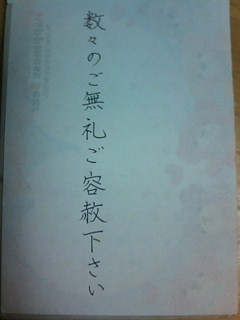 数々のご無礼ご容赦下さい